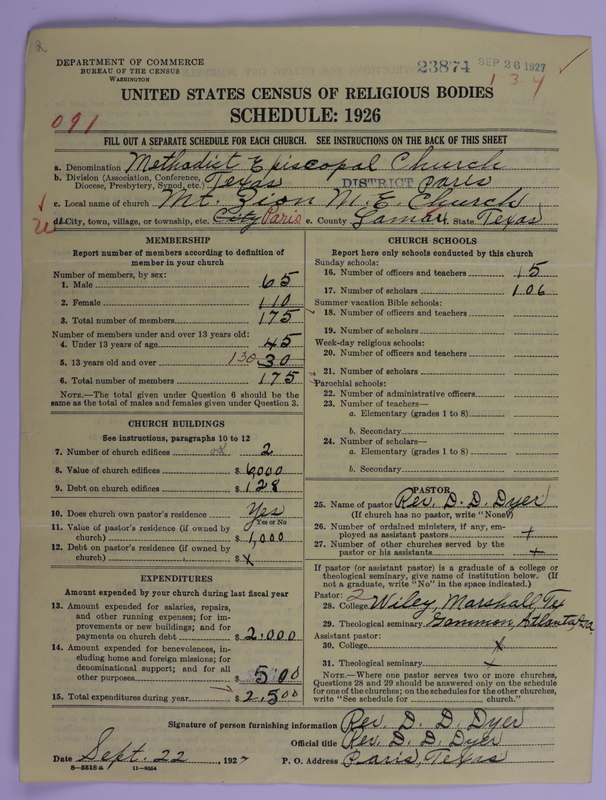 DEPARTMENT OF COMMERCE
BUREAU OF THE CENSUS
WASHINGTON
23874 SEP 26 1927
1 3 4
UNITED STATES CENSUS OF RELIGIOUS BODIES
SCHEDULE: 1926
091
FILL OUT A SEPARATE SCHEDULE FOR EACH CHURCH. SEE INSTRUCTIONS ON THE BACK OF THIS SHEET
a. Denomination Methodist Episcopal Church
b. Division (Association, Conference, Diocese, Presbytery, Synod, etc.) Texas DISTRICT Paris
c. Local name of church Mt. Zion M. E. Church
d. City, town, village, or township, etc. City Paris e. County Lamar f. State Texas
MEMBERSHIP
Report number of members according to definition of
member in your church
Number of members, by sex:
1. Male 65
2. Female 110
3. Total number of members 175
Number of members under and over 13 years old:
4. Under 13 years of age 45
5. 13 years old and over 130 30
6. Total number of members 175
NOTE.—The total given under Question 6 should be the
same as the total of males and females given under Question 3.
CHURCH BUILDINGS
See instructions, paragraphs 10 to 12
7. Number of church edifices 2
8. Value of church edifices $ 6,000
9. Debt on church edifices $ 128
10. Does church own pastor's residence Yes
Yes or No
11. Value of pastor's residence (if owned by
church) $ 1,000
12. Debt on pastor's residence (if owned by
church) $ x
EXPENDITURES
Amount expended by your church during last fiscal year
13. Amount expended for salaries, repairs,
and other running expenses; for im-
provements or new buildings; and for
payments on church debt $ 2.000
14. Amount expended for benevolences, in-
cluding home and foreign missions; for
denominational support; and for all
other purposes $ 500
15. Total expenditures during year $ 2.500
CHURCH SCHOOLS
Report here only schools conducted by this church
Sunday schools:
16. Number of officers and teachers 15
17. Number of scholars 106
Summer vacation Bible schools:
18. Number of officers and teachers
19. Number of scholars
Week-day religious schools:
20. Number of officers and teachers
21. Number of scholars
Parochial schools:
22. Number of administrative officers
23. Number of teachers—
a. Elementary (grades 1 to 8)
b. Secondary
24. Number of scholars—
a. Elementary (grades 1 to 8)
b. Secondary
PASTOR
25. Name of pastor Rev. D. D. Dyer
(If church has no pastor, write "None")
26. Number of ordained ministers, if any, em-
ployed as assistant pastors x
27. Number of other churches served by the
pastor or his assistants x
If pastor (or assistant pastor) is a graduate of a college or
theological seminary, give name of institution below. (If
not a graduate, write "No" in the space indicated.)
Pastor: 2
28. College Wiley, Marshall, Tex
29. Theological seminary Gammon, Atlanta Ga.
Assistant pastor:
30. College x
31. Theological seminary x
NOTE.—Where one pastor serves two or more churches,
Questions 28 and 29 should be answered only on the schedule
for one of the churches; on the schedules for the other churches,
write "See schedule for ........ church."
Signature of person furnishing information Rev. D. D. Dyer
Official title Rev. D. D. Dyer
Date Sept. 22, 1927 P. O. Address Paris, Texas
8—5518 a 11—9034